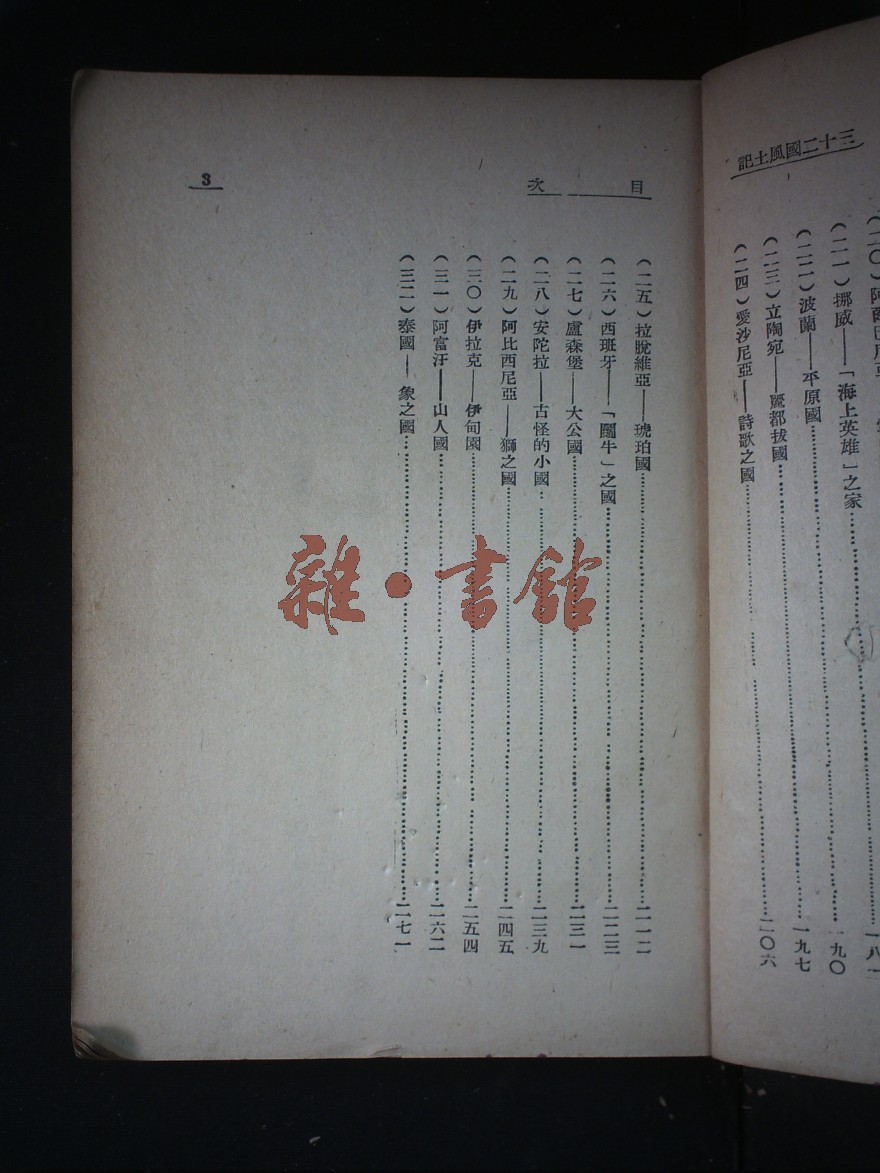 三十二國風土記
(二一)挪威——「海上英雄」之家……一九〇
(二二)波蘭——平原國……一九七
(二三)立陶宛——麗都拔國
(二四)愛沙尼亞——詩歌之國……二〇六
目次
3
(二五)拉脫維亞——琥珀國……二一二
(二六)西班牙——「鬬牛」之國……二二三
(二七)盧森堡——大公國……二三一
(二八)安陀拉——古怪的小國……二三九
(二九)阿比西尼亞——獅之國……二四五
(三〇)伊拉克——伊甸園……二五四
(三一)阿富汗——山人國……二六二
(三二)泰國——象之國……二七一
雜·書館